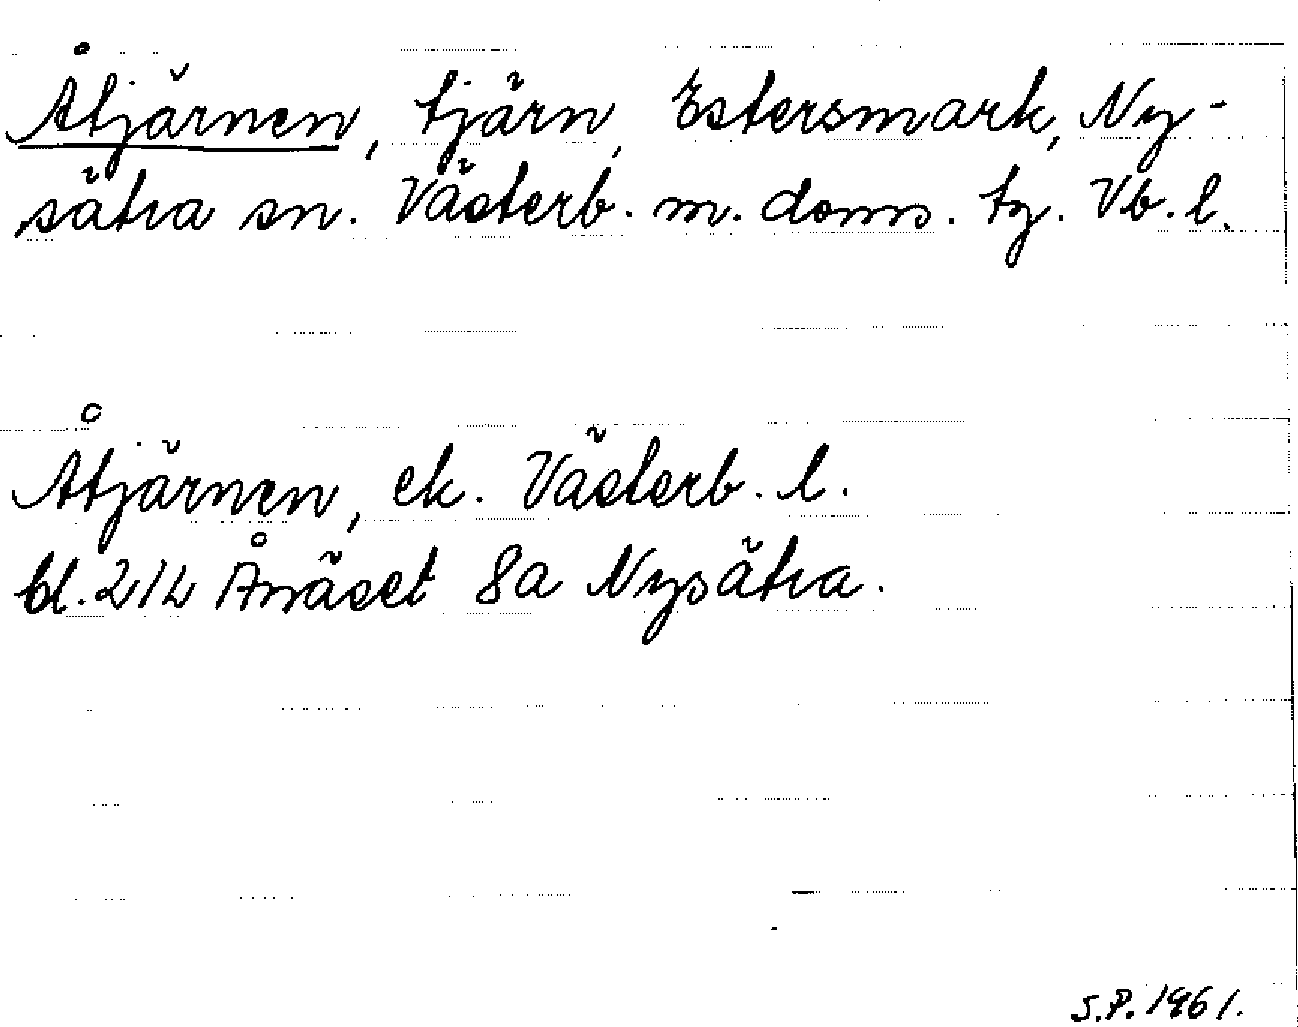 Åtjärnen, tjärn, Estersmark, Ny-
sätra sn. Västerb. m. doms. tg. Vb. l.
Åtjärnen, ek. Västerb. l.
bl. 214 Ånäset 8a Nysätra.
S.P. 1961.